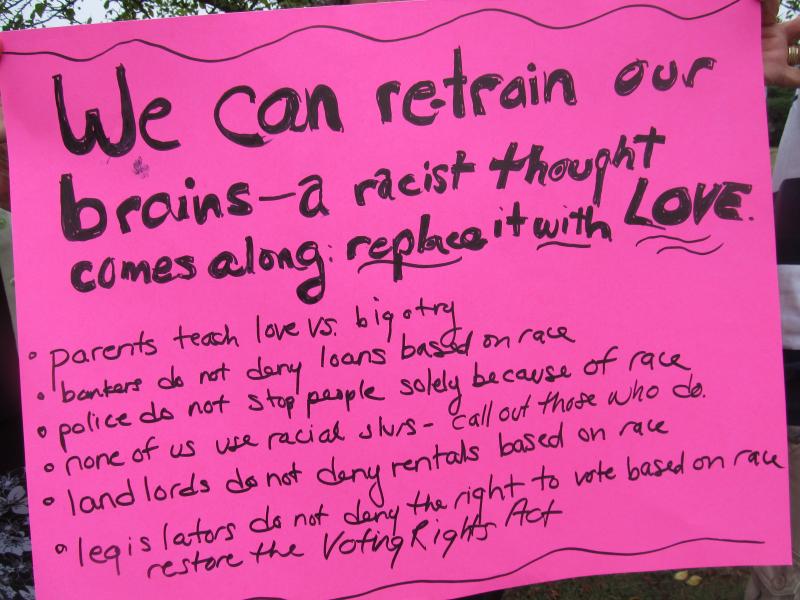 We can retrain our
brains-a racist thought
comes along: replace it with LOVE.
• parents teach love vs. bigotry
• bankers do not deny loans based on race
• police do not stop people solely because of race
• none of us use racial slurs - call out those who do.
• landlords do not deny rentals based on race
• legislators do not deny the right to vote based on race
restore the Voting Rights Act